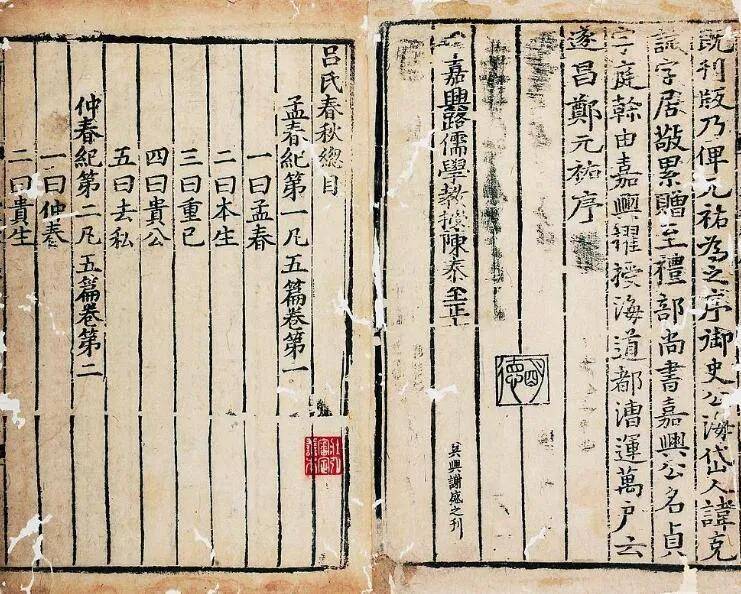 既刊版乃俾元祐為之序御史公海岱人諱克
字居敬累贈至禮部尚書嘉興公名貞
字庭幹由嘉興擢授海道都漕運萬户云
遂昌鄭元祐序
嘉興路儒學教授陳泰至正
吳興謝盛之刊
呂氏春秋總目
孟春紀第一凡五篇卷第一
一曰孟春
二曰本生
三曰重己
四曰貴公
五曰去私
仲春紀第二凡五篇卷第二
一曰仲春
二曰貴生